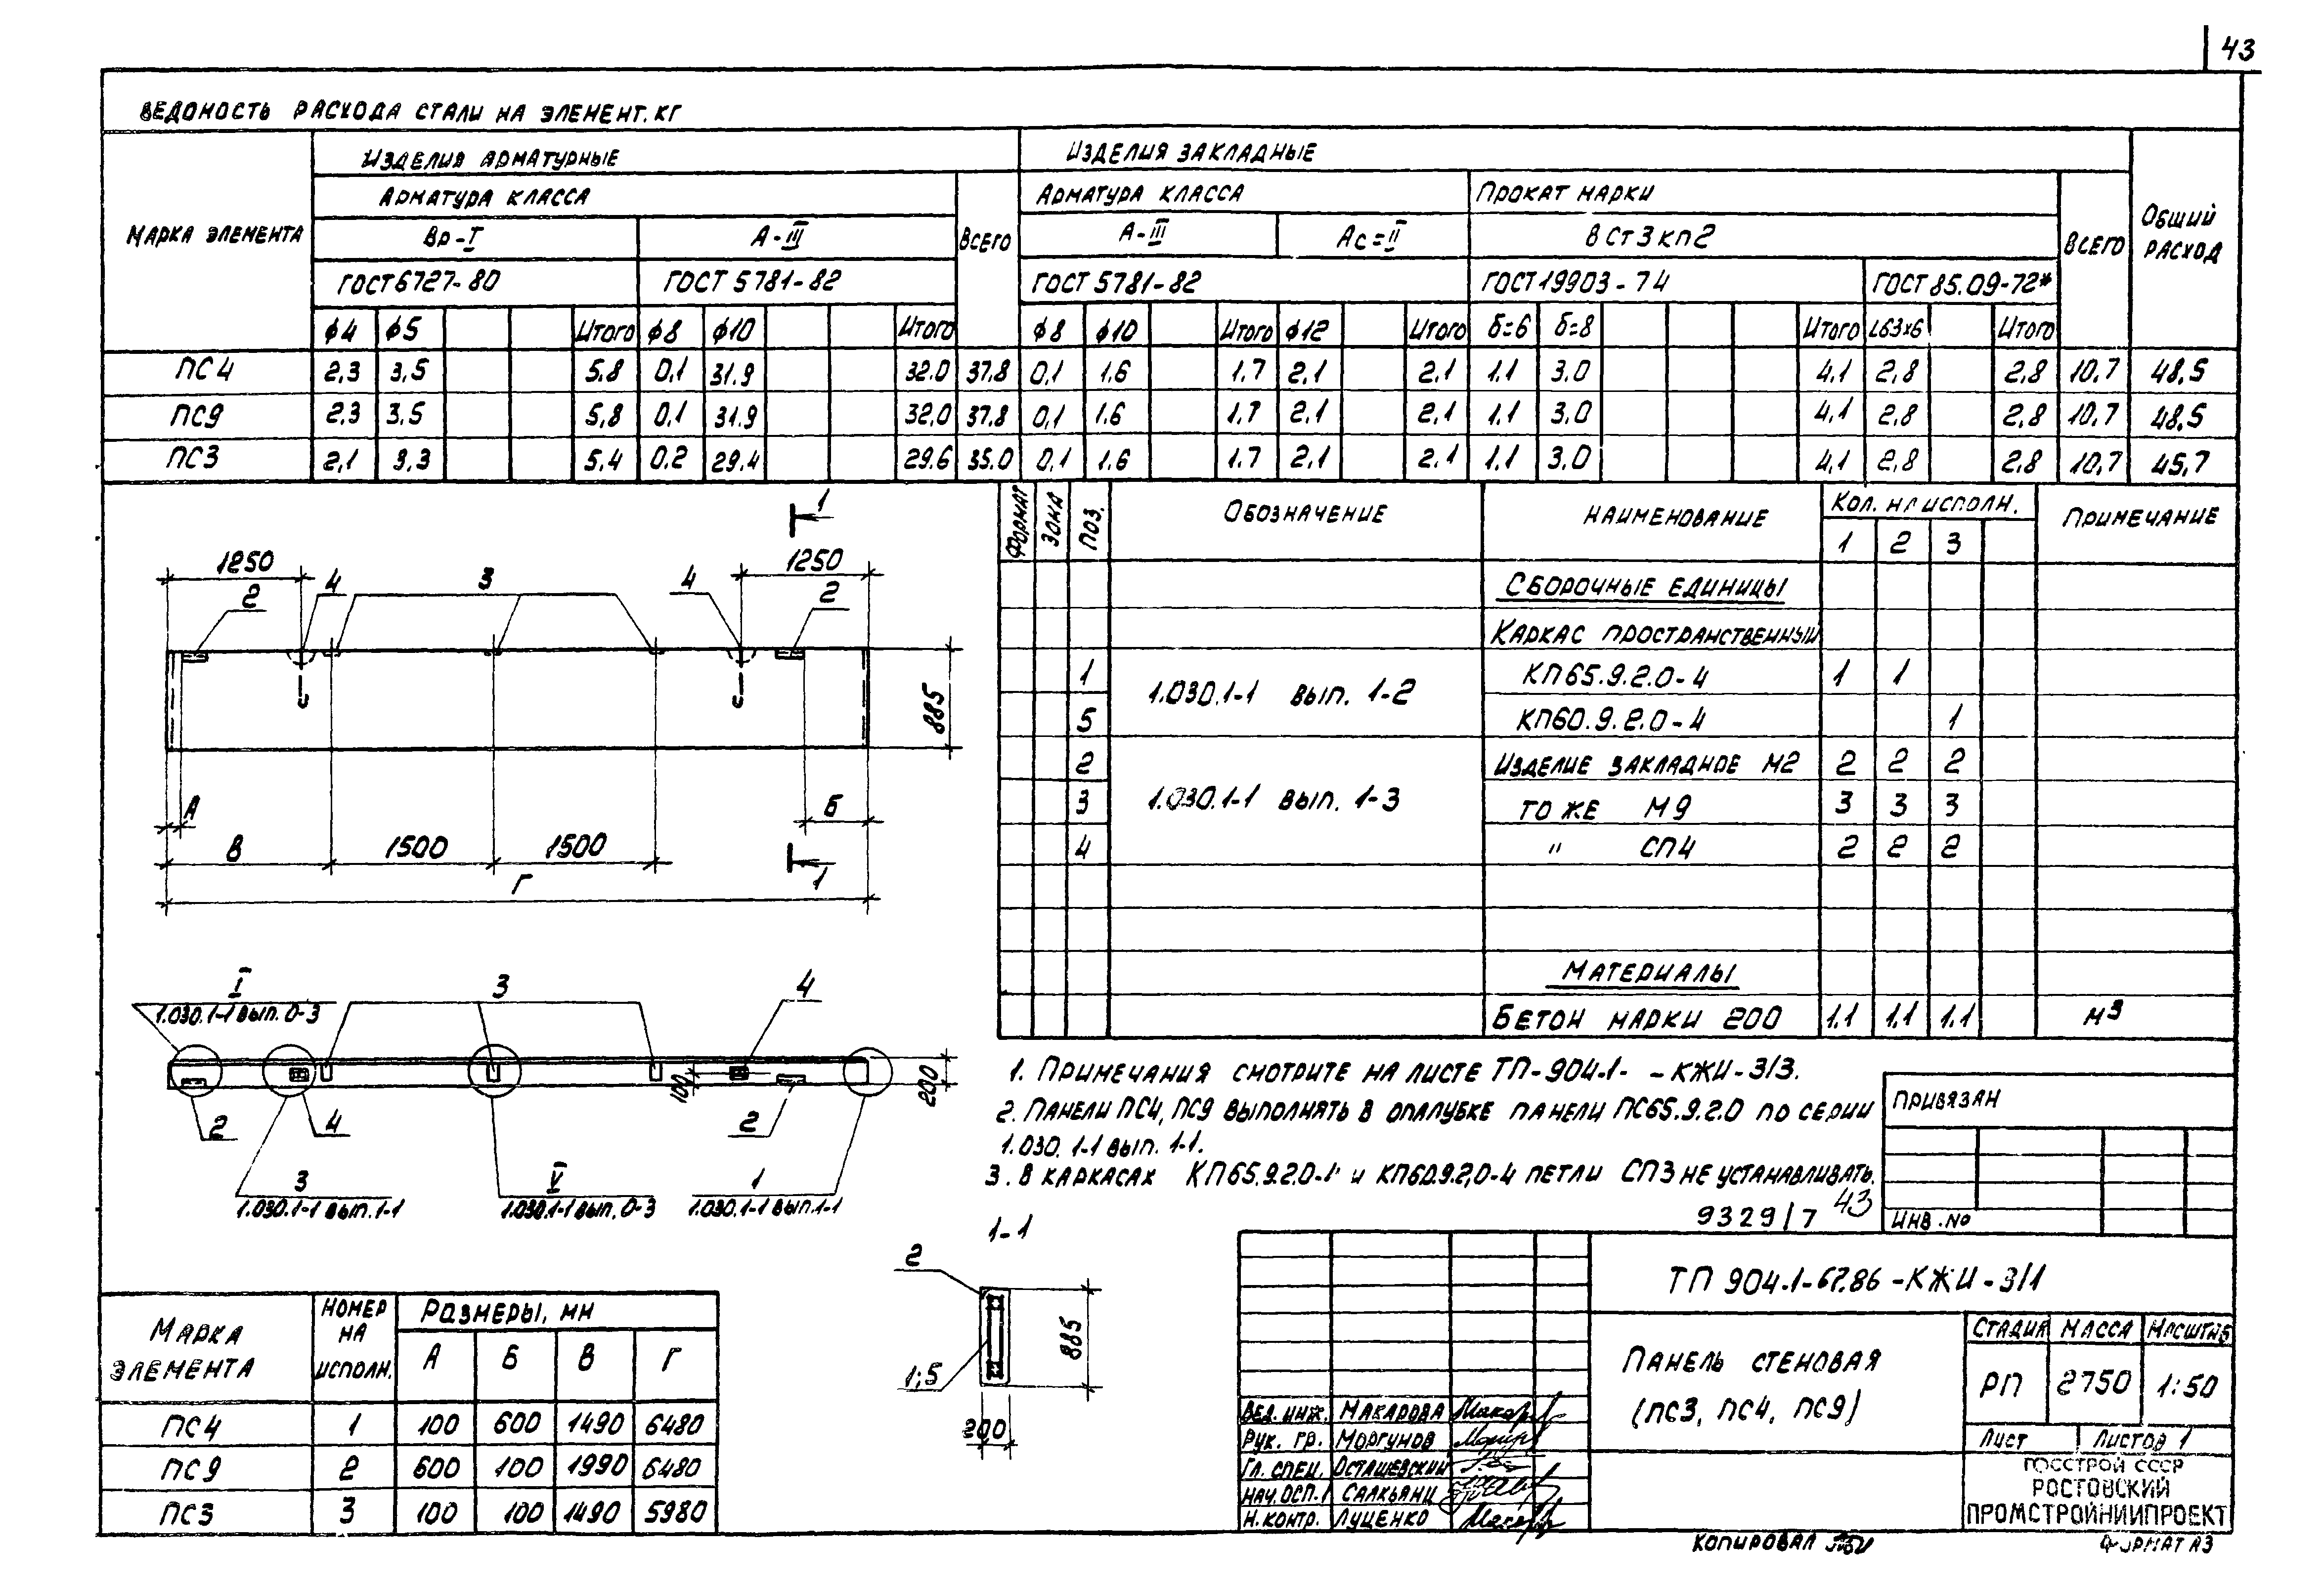 43
ВЕДОМОСТЬ РАСХОДА СТАЛИ НА ЭЛЕМЕНТ. КГ
МАРКА ЭЛЕМЕНТА
ИЗДЕЛИЯ АРМАТУРНЫЕ
ИЗДЕЛИЯ ЗАКЛАДНЫЕ
ОБЩИЙ РАСХОД
АРМАТУРА КЛАССА
ВСЕГО
АРМАТУРА КЛАССА
ПРОКАТ МАРКИ
ВСЕГО
Вр-I
А-III
А-III
Ас=II
ВСт3кп2
ГОСТ 6727-80
ГОСТ 5781-82
ГОСТ 5781-82
ГОСТ 19903-74
ГОСТ 85.09-72*
ф4 ф5 Итого ф8 ф10 Итого ф8 ф10 Итого ф12 Итого б=6 б=8 Итого L63х6 Итого
ПС4 2,3 3,5 5,8 0,1 31.9 32.0 37.8 0,1 1.6 1.7 2.1 2.1 1.1 3.0 4.1 2,8 2,8 10.7 48,5
ПС9 2,3 3,5 5,8 0.1 31.9 32.0 37.8 0,1 1.6 1.7 2.1 2.1 1.1 3.0 4.1 2,8 2,8 10.7 48,5
ПС3 2,1 3,3 5.4 0.2 29.4 29.6 35.0 0.1 1.6 1.7 2.1 2.1 1.1 3.0 4.1 2,8 2.8 10.7 45,7
1
1250
4
3
4
1250
2
2
885
А
Б
В
1500
1500
Г
1
I
1.030.1-1 вып. 0-3
3
4
100
200
2
4
2
3
1.030.1-1 вып. 1-1
V
1.030.1-1 вып. 0-3
1
1.030.1-1 вып. 1-1
ФОРМАТ
ЗОНА
ПОЗ.
ОБОЗНАЧЕНИЕ
НАИМЕНОВАНИЕ
КОЛ. НА ИСПОЛН.
ПРИМЕЧАНИЕ
1 2 3
СБОРОЧНЫЕ ЕДИНИЦЫ
КАРКАС ПРОСТРАНСТВЕННЫЙ
1 КП65.9.2.0-4 1 1
1.030.1-1 вып. 1-2
5 КП60.9.2.0-4 1
2 ИЗДЕЛИЕ ЗАКЛАДНОЕ М2 2 2 2
3 1.030.1-1 вып. 1-3 ТО ЖЕ М9 3 3 3
4 " СП4 2 2 2
МАТЕРИАЛЫ
БЕТОН МАРКИ 200 1.1 1.1 1.1 м3
1. ПРИМЕЧАНИЯ СМОТРИТЕ НА ЛИСТЕ ТП-904-1- -КЖИ-3/3.
2. ПАНЕЛИ ПС4, ПС9 ВЫПОЛНЯТЬ В ОПАЛУБКЕ ПАНЕЛИ ПС65.9.2.0 ПО СЕРИИ
1.030.1-1 вып. 1-1.
3. В КАРКАСАХ и КП60.9.2,0-4 ПЕТЛИ СП3 НЕ УСТАНАВЛИВАТЬ.
9329/7 43
ПРИВЯЗАН
ИНВ.№
1-1
2
1;5
885
200
МАРКА ЭЛЕМЕНТА
НОМЕР НА ИСПОЛН.
РАЗМЕРЫ, ММ
А Б В Г
ПС4 1 100 600 1490 6480
ПС9 2 600 100 1990 6480
ПС3 3 100 100 1490 5980
ТП 904-1-67.86-КЖИ-3/1
ПАНЕЛЬ СТЕНОВАЯ
(ПС3, ПС4, ПС9)
СТАДИЯ МАССА МАСШТАБ
РП 2750 1:50
ЛИСТ ЛИСТОВ 1
ГОССТРОЙ СССР
РОСТОВСКИЙ
ПРОМСТРОЙНИИПРОЕКТ
ВЕД. ИНЖ. МАКАРОВА
РУК. ГР. МОРГУНОВ
ГЛ. СПЕЦ. ОСТАШЕВСКИЙ
НАЧ. ОСП-1 САЛКЬЯНЦ
Н. КОНТР. ЛУЦЕНКО
КОПИРОВАЛ
ФОРМАТ А3